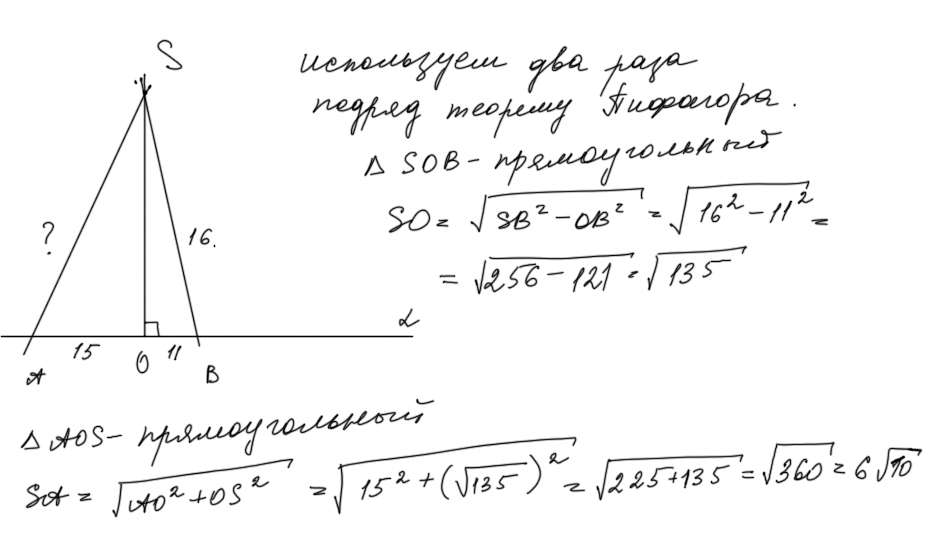 S
используем два раза
подряд теорему Пифагора.
△ SOB - прямоугольный
SO = √(SB² - OB²) = √(16² - 11²) =
= √(256 - 121) = √135
?
16.
α
15
O
11
A
B
△ AOS - прямоугольный
SA = √(AO² + OS²) = √(15² + (√135)²) = √(225 + 135) = √360 = 6√10